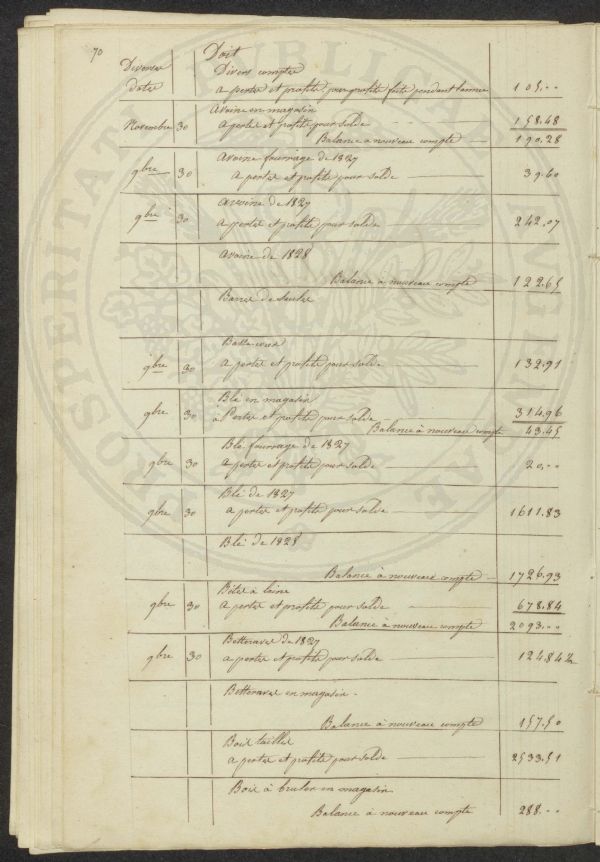 70
Doit
Diverses dates Divers comptes
a pertes et profits pour profits faits pendant l'année 105..
Avoine en magasin
Novembre 30 a pertes et profits pour solde 158.48
Balance à nouveau compte 190.28
Avoine fourrage de 1827
9bre 30 a pertes et profits pour solde 39.60
avoine de 1827
9bre 30 a pertes et profits pour solde 242.07
avoine de 1828
Balance a nouveau compte 122.65
Barre de
Basse-cour
9bre 30 a pertes et profits pour solde 132.91
Blé en magasin
9bre 30 à Pertes et profits pour solde 314.96
Balance à nouveau compte 43.45
Blé fourrage de 1827
9bre 30 a pertes et profits pour solde 20..
Blé de 1827
9bre 30 a pertes et profits pour solde 1611.83
Blé de 1828
Balance à nouveau compte 1726.93
Bêtes à laine
9bre 30 a pertes et profits pour solde 678.84
Balance à nouveau compte 2093...
Betteraves de 1827
9bre 30 a pertes et profits pour solde 124.84½
Betteraves en magasin.
Balance à nouveau compte 157.50
Bois taillis
a pertes et profits pour solde 2533.51
Bois à bruler en magasin
Balance à nouveau compte 288...
PROSPERITATI PUBLICAE